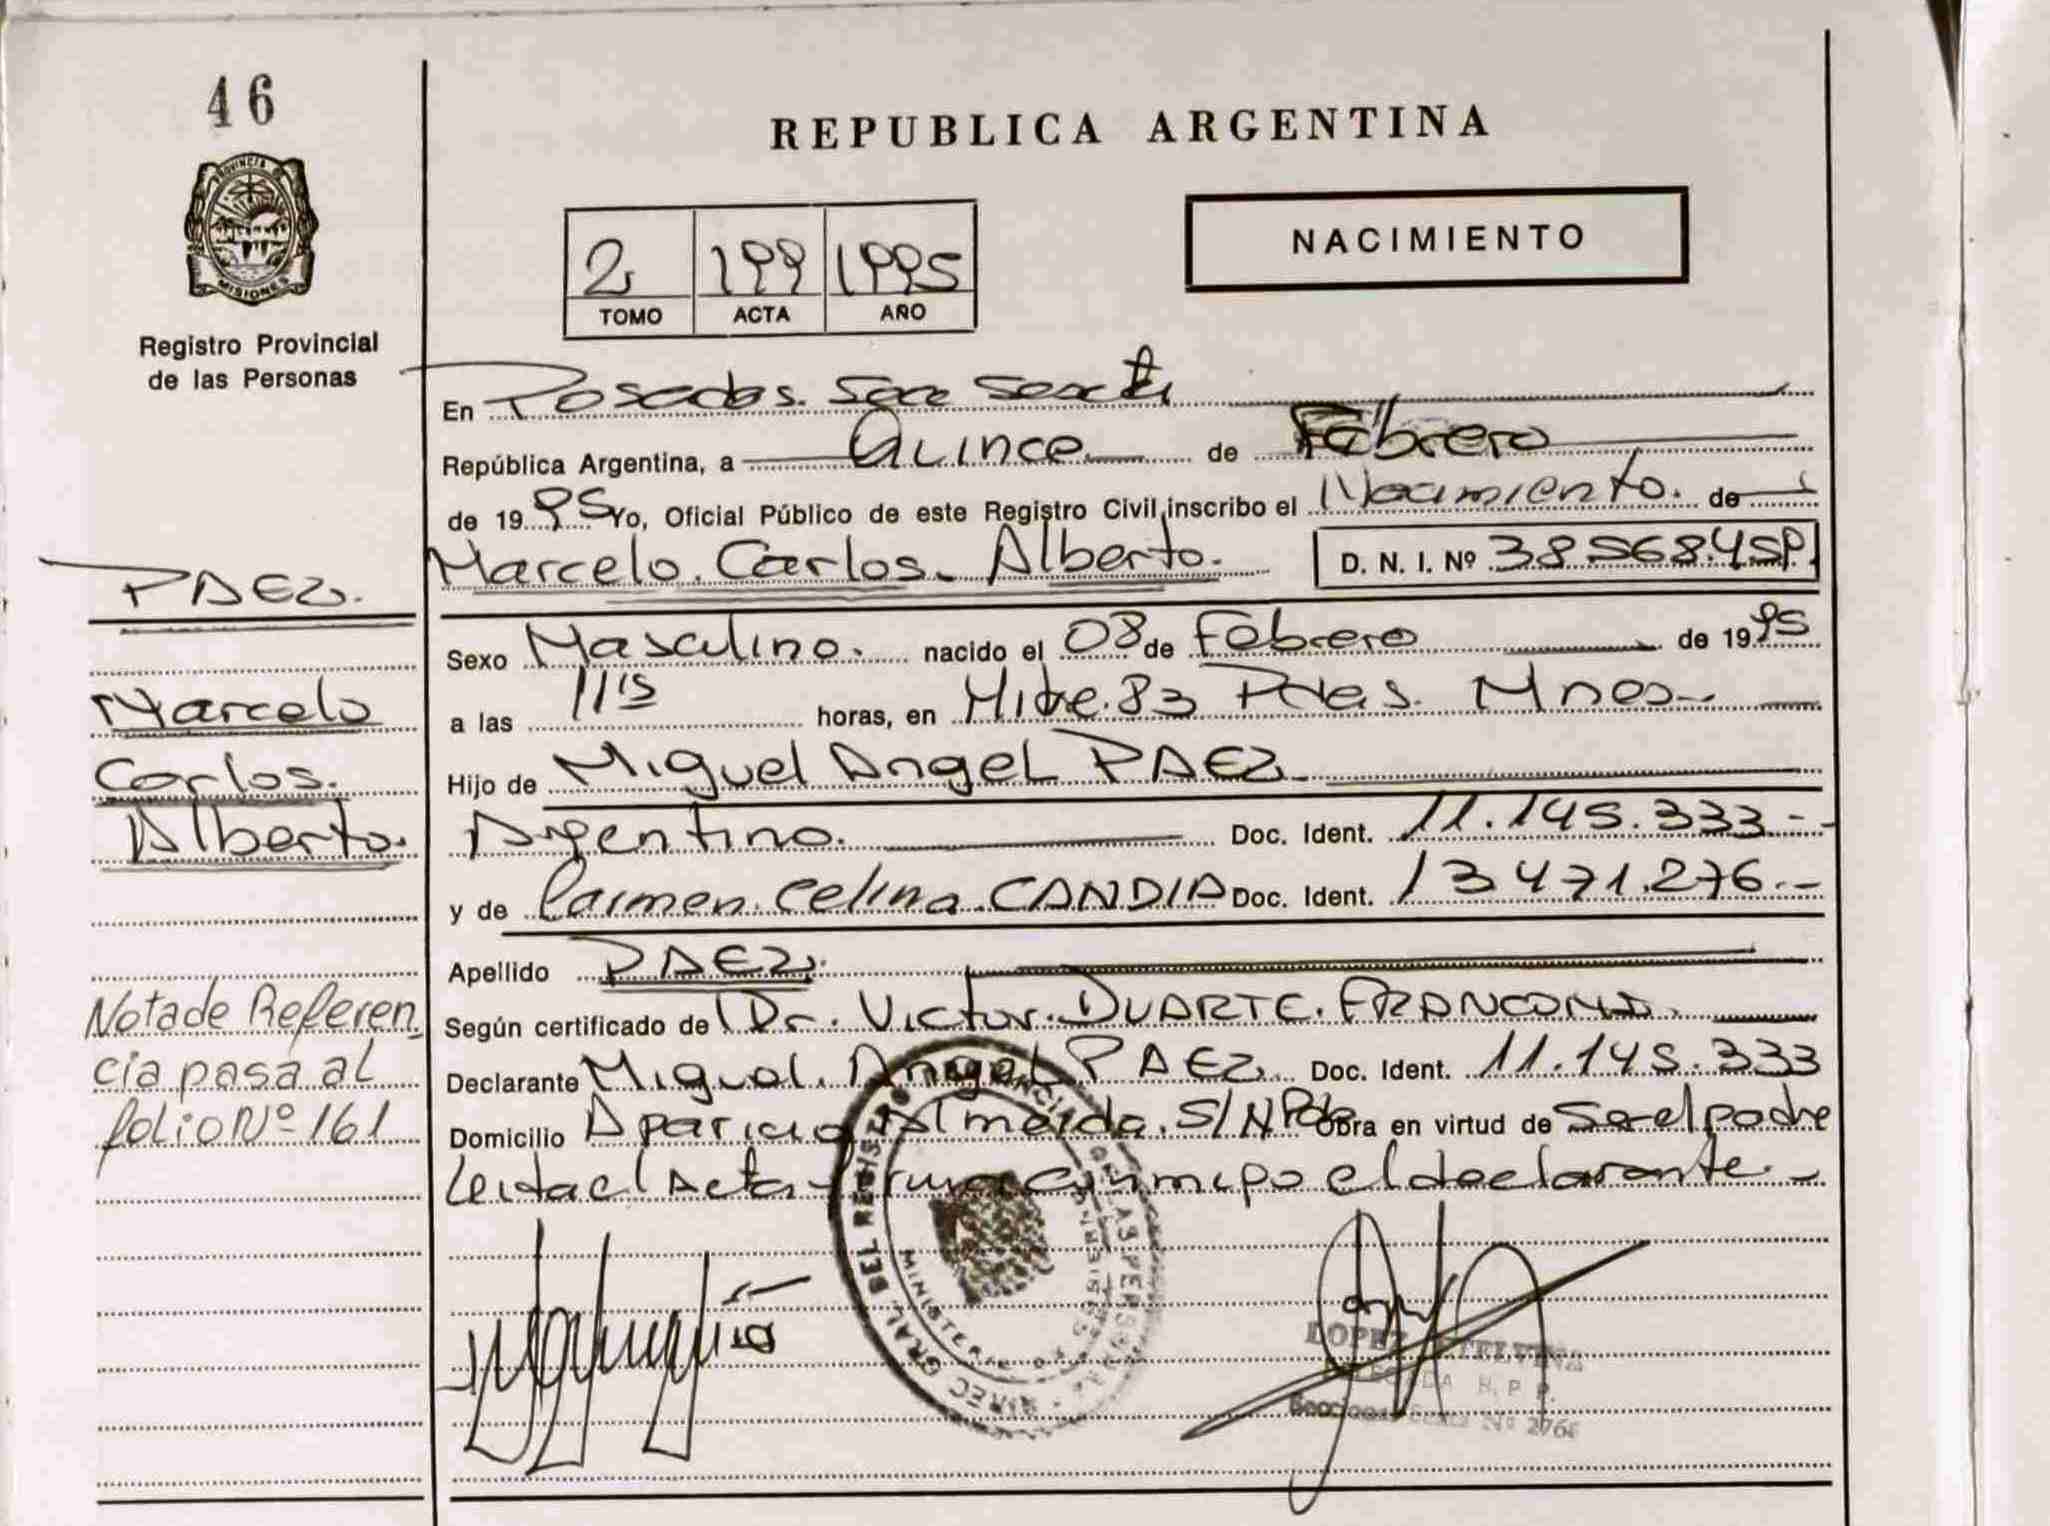 46
PROVINCIA DE
MISIONES
Registro Provincial
de las Personas
PAEZ.
Marcelo
Carlos.
Alberto.
Nota de Referen
cia pasa al
folio Nº 161
REPUBLICA ARGENTINA
2 199 1995
TOMO ACTA AÑO
NACIMIENTO
En Posadas. Secc Sexta
República Argentina, a Quince de Febrero
de 1995 Yo, Oficial Público de este Registro Civil inscribo el Nacimiento. de
Marcelo. Carlos. Alberto. D. N. I. Nº 38.568.459.
Sexo Masculino. nacido el 08 de Febrero de 1995
a las 11 15 horas, en Mitre. 83 Pdas. Mnes.
Hijo de Miguel Angel PAEZ
Argentino. Doc. Ident. 11.145.333.-
y de Carmen. Celina. CANDIA Doc. Ident. 13.471.276.-
Apellido PAEZ.
Según certificado de Dr. Victor. DUARTE.
Declarante Miguel. Angel PAEZ. Doc. Ident. 11.145.333
Domicilio Aparicio Almeida. S/N Pdas Obra en virtud de Ser el padre
Leida el Acta firma conmigo el declarante.-
DIREC GRAL DEL REGISTRO PROVINCIAL DE LAS PERSONAS
MINISTERIO DE GOBIERNO
LOPEZ ETELVINA
DELEGADA R. P. P.
Seccional Sexta Nº